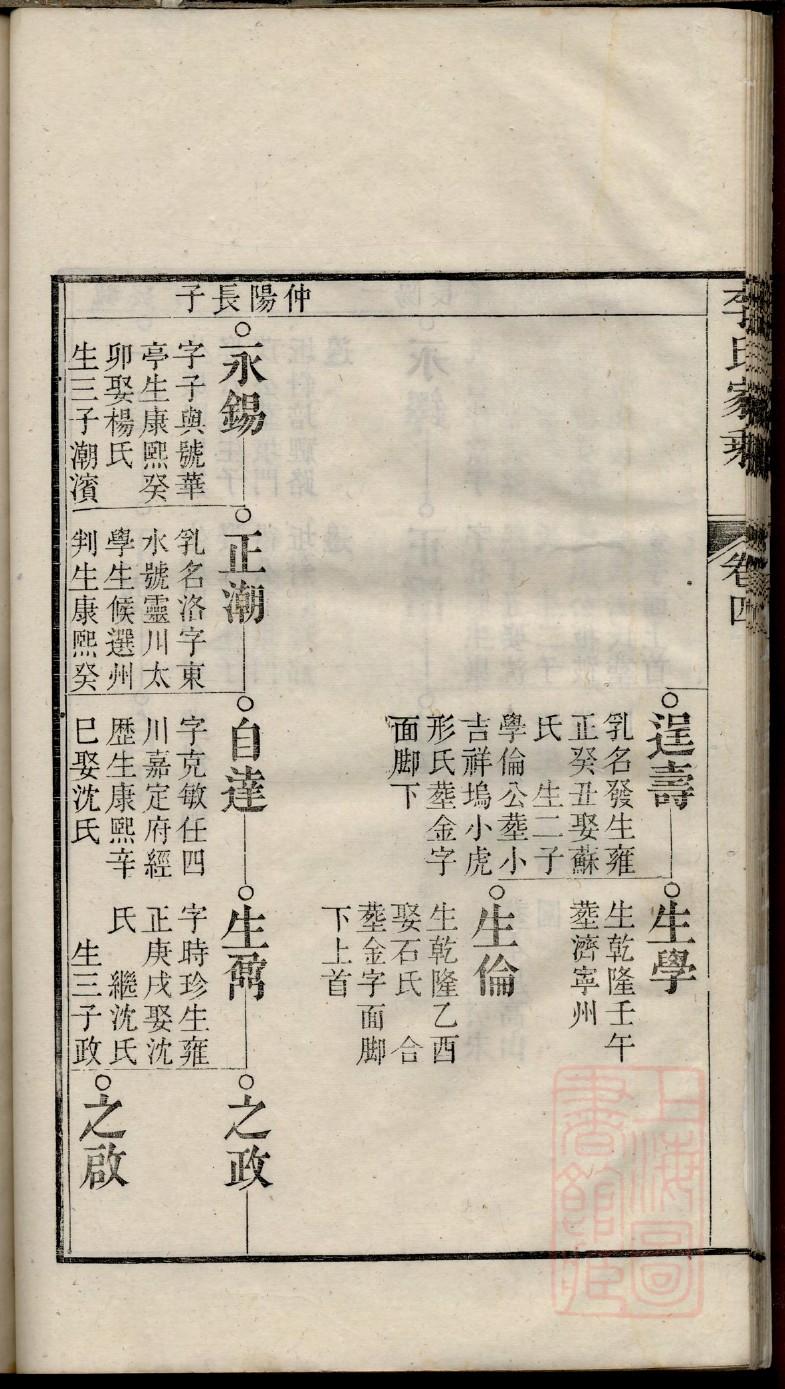 李氏家乘
卷四
逞壽
乳名發生雍
正癸丑娶蘇
氏　生二子
學倫公塟小
吉祥塢小虎
形氏塟金字
面脚下
生學
生乾隆壬午
塟濟寧州
生倫
生乾隆乙酉
娶石氏　合
塟金字面脚
下上首
仲陽長子
永錫
字子與號華
亭生康熙癸
卯娶楊氏
生三子潮濱
正潮
乳名洛字東
水號靈川太
學生候選州
判生康熙癸
自達
字克敏任四
川嘉定府經
歷生康熙辛
巳娶沈氏
生鼐
字時珍生雍
正庚戌娶沈
氏　繼沈氏
生三子政
之政
之啟
上海圖
書館藏